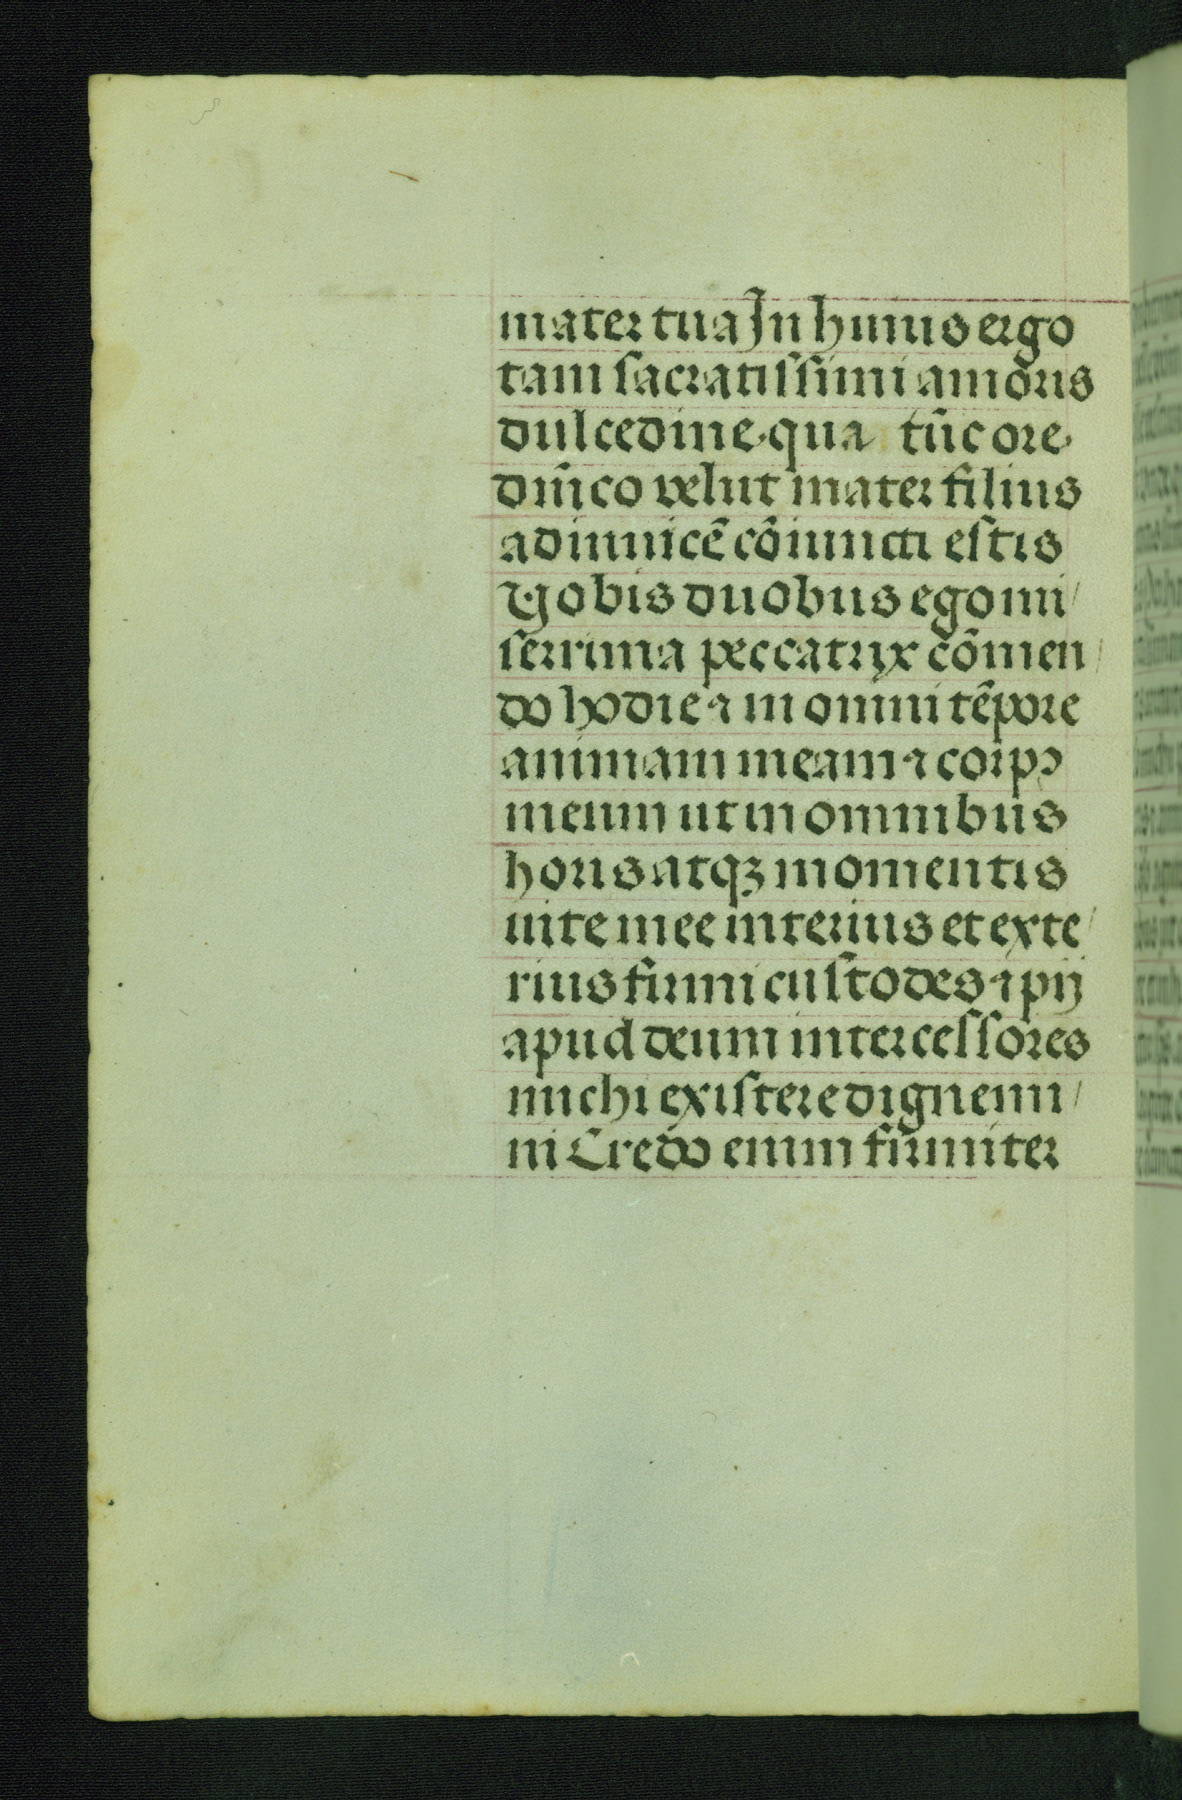 mater tua In huius ergo
tam sacratissimi amoris
dulcedine qua tūc ore
dn̄ico velut mater filius
adinuicē cōiuncti estis
Vobis duobus ego mi/
serrima peccatrix cōmen/
do hodie ⁊ in omni tēpore
animam meam ⁊ corpꝰ
meum ut in omnibus
horis atqꝫ momentis
uite mee interius et exte/
rius firmi custodes ⁊ pij
apud deum intercessores
michi existere dignemi/
ni Credo enim firmiter